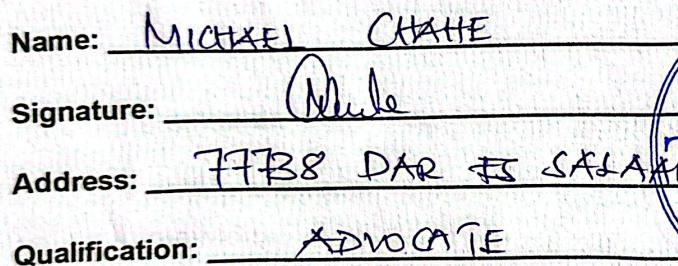 Name: MICHAEL CHAHE
Signature:
Address: 77738 DAR ES SALAAM
Qualification: ADVOCATE